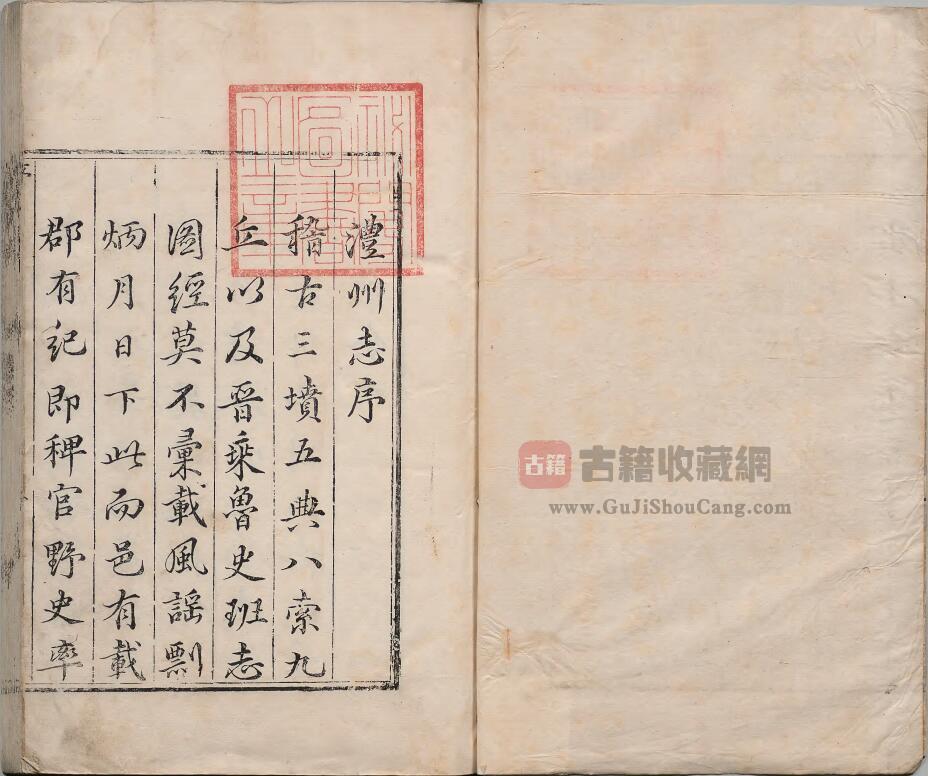 澧州志序
稽古三墳五典八索九
丘以及晉乗魯史班志
圖經莫不彙載風謡剽
炳月日下此而邑有載
郡有紀即稗官野史率
古籍
古籍收藏網
www.GuJiShouCang.com